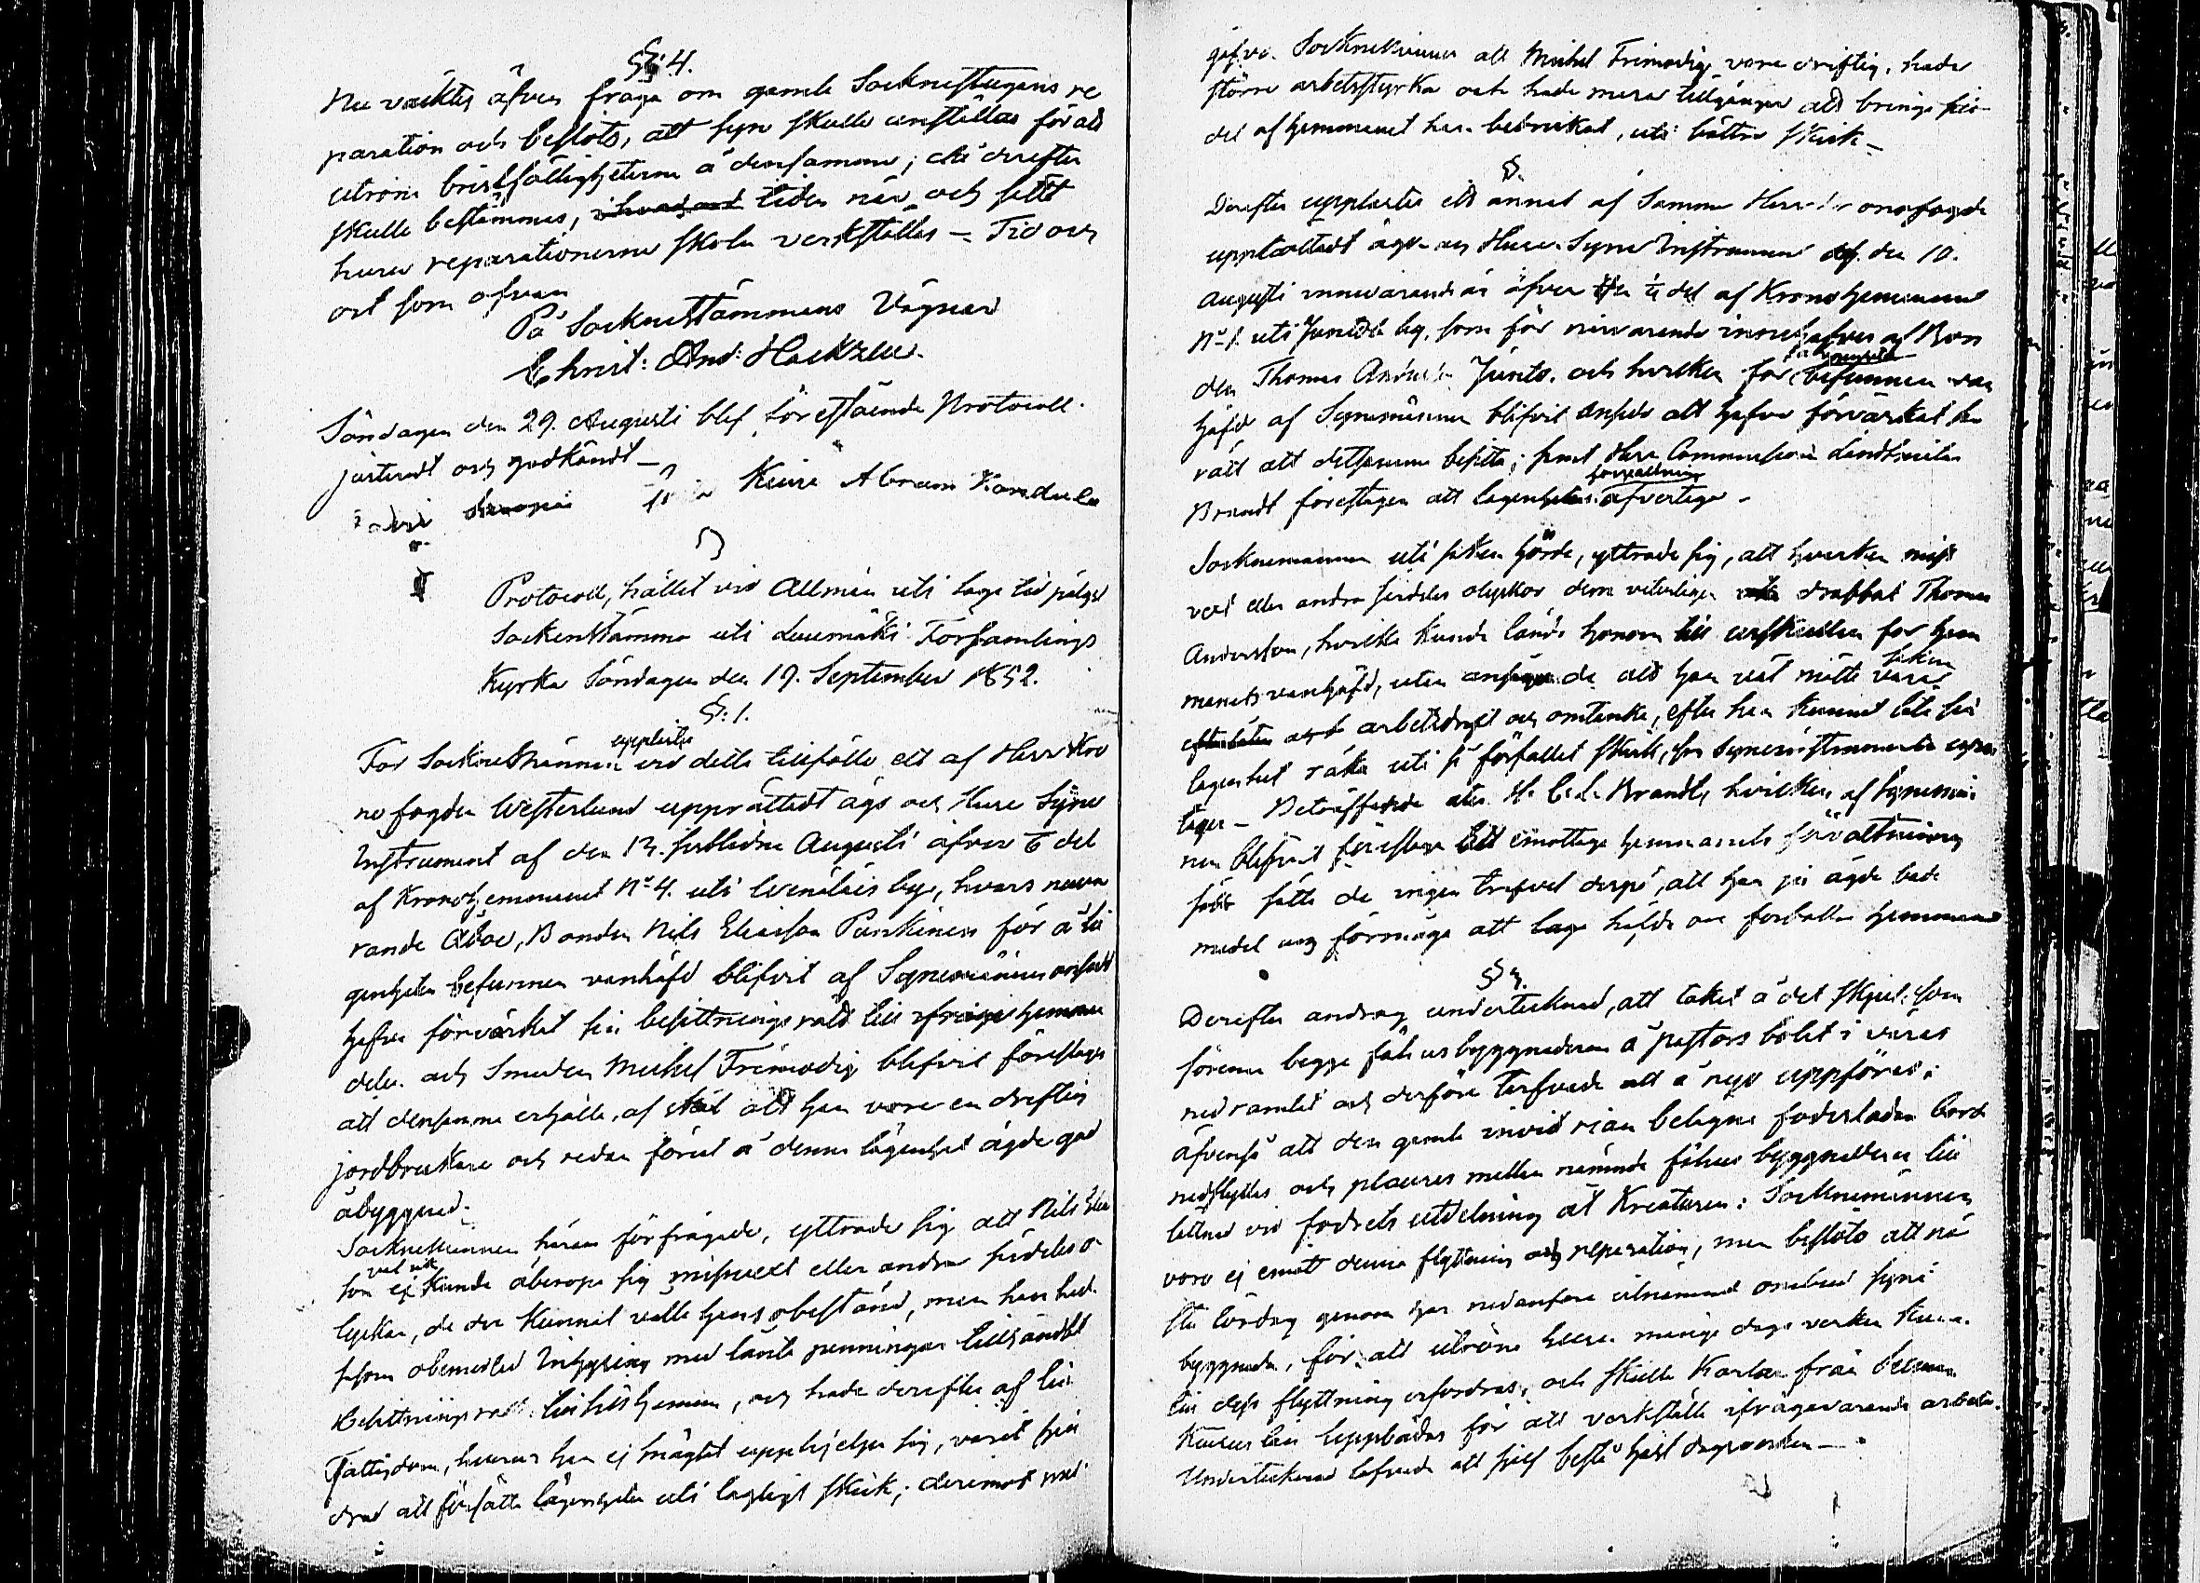 §: 4.
Nu väcktes äfven fråga om gamla Socknestugans re
paration och beslöts, att syn skulle anställas för att
utröna bristfälligheterna å densamma; då derefter
skulle bestämmas, tiden när och sättet
huru reparationerna skola verkställas – Tid och
ort som ofvan
På Sockenstämmans Vägnar
Christ: And: Hackzell.
Söndagen den 29. Augusti blef föreståendе Protocoll
justeradt och godkändt –
Abram
§
Protocoll, hållet vid Allmän uti laga tid pålyst
Sockenstämma uti Luumäki Församlings
Kyrka Söndagen den 19. September 1852.
§: 1.
upplästes
För Sockneskännen vid detta tillfälle ett af Herr Kro
nofogden Westerlund upprättadt ägo och Huse Syne
Instrument af den 13. sistledne Augusti öfver 1/6 del
af Kronohemmanet No 4. uti by, hvars nuva
rande Åboe, Bonden Nils Eliasson Punkinen för å lä
genheten befunnen vanhäfd blifvit af Synemännen ansedd
hafva förvärkat sin besittningsrätt till ifrågav hemmans
delen och Smeden Michel Frimodig blifvit föreslagen
att densamma erhålla, af skäl att han vore en driftig
jordbrukare och redan förut å denna lägenhet ägde god
åbyggnad.
Socknemännen häröm förfrågade, yttrade sig att Nils Elia
väl icke
son ej kunde åberopa sig misswext eller andra färdeles o
lyckor, de der kunnat valla hans obestånd, men han hade
såsom obemedlad Inhysing med lånta penningar tillhandlat
Besittningsrätt till sitt hemman, och hade derefter af sin
Fattigdom, hvarur han ej mägtat upphjelpa sig, varit hin
drad att försätta lägenheten uti lagligt skick; deremot med
gåfvo Socknemännen att Michel Frimodig vore driftig, hade
större arbetsstyrka och hade mera tillgångar att bringa sin
del af hemmanet han bebrukat, uti bättre skick –
§.
Derefter upplästes ett annat af Samma Herr Kronofogde
upprättadt ägo och Huse Syne Instrument af den 10.
Augusti innevarande år öfver del af Kronohemmanet
No 1. uti by, som för närvarande innehafves af Bon
den Thomas Andersson Junto. och hvilken för befunnen van
häfd af Synemännen blifvit ansedd att hafva förvärkat sin
rätt att detsamma besitta; samt Herr Commissions Landtmätaren
förvaltning
Brandt föreslagen att lägenhetens öfvertaga –
Socknemännen uti saken hörde, yttrade sig, att hvarken miss
vext eller andra färdeles olyckor dem veterligen drabbat Thomas
Andersson, hvilka kunde lända honom till ursäktan för hem
saknа
manets vanhäfd, utan ansågo de att han rät måtte
arbetsdrift och omtanka, efter han kunnat låta sin
lägenhet råka uti så förfallet skick, som Syneinstrumentet upp
tager – Beträffande åter H. C. L. Brandt, hvilken af Synemän
nen blifvit föreslagen att emottaga hemmanets förvaltning
så satte de ingen tvifvel derpå, att han ju ägde både
medel och förmåga att laga häfda och förbättra hemmanet
§ 3.
Derefter androg undertecknad, att taket å det skjul, som
förena begge fähus byggnaderna å pastorsbolet i våras
nedramlat och derföre tarfvade att å nyo uppföras;
äfvenså att den gamla invid rian belegne foderladan borde
nedflyttas och placeras mellan nämnda fähus byggnader till
lättnad vid fodrets utdelning åt Kreaturen: Socknemännen
voro ej emot denna flyttning och reparation, men beslöto att nä
sta lördag genom här nedanföre utnämnd ombud syna
byggnaden, för att utröna huru många dagsverken kunna
till dess flyttning erfordras, och skulle Karlar från
Kuuisela uppbådas för att verkställa ifrågavarande arbeten.
Undertecknad lofvade att sjelf bestå häst dagsverken –